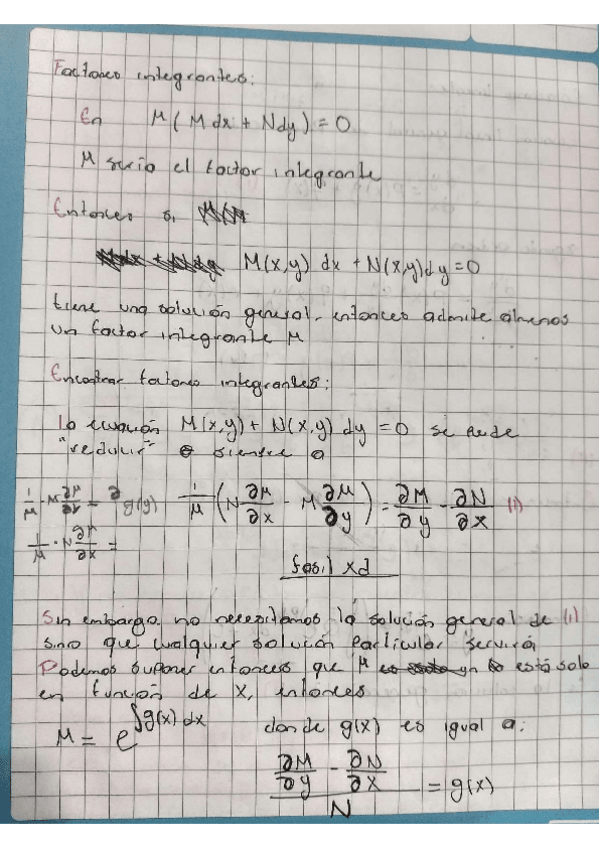 Factores integrantes:
En μ( M dx + N dy) = 0
μ sería el factor integrante
Entonces si
M(x,y) dx + N(x,y) dy = 0
tiene una solución general, entonces admite almenos
un factor integrante μ
Encontrar factores integrantes:
La ecuación M(x,y) + N(x,y) dy = 0 se puede
"reducir" siempre a
1/μ · M ∂μ/∂x = g(y) 1/μ (N ∂μ/∂x - M ∂μ/∂y) = ∂M/∂y - ∂N/∂x (1)
1/μ · N ∂μ/∂x =
fasil xd
Sin embargo, no necesitamos la solución general de (1)
sino que cualquier solución particular servirá
Podemos suponer entonces que μ está solo
en función de x, entonces
μ = e^∫g(x) dx donde g(x) es igual a:
(∂M/∂y - ∂N/∂x)/N = g(x)